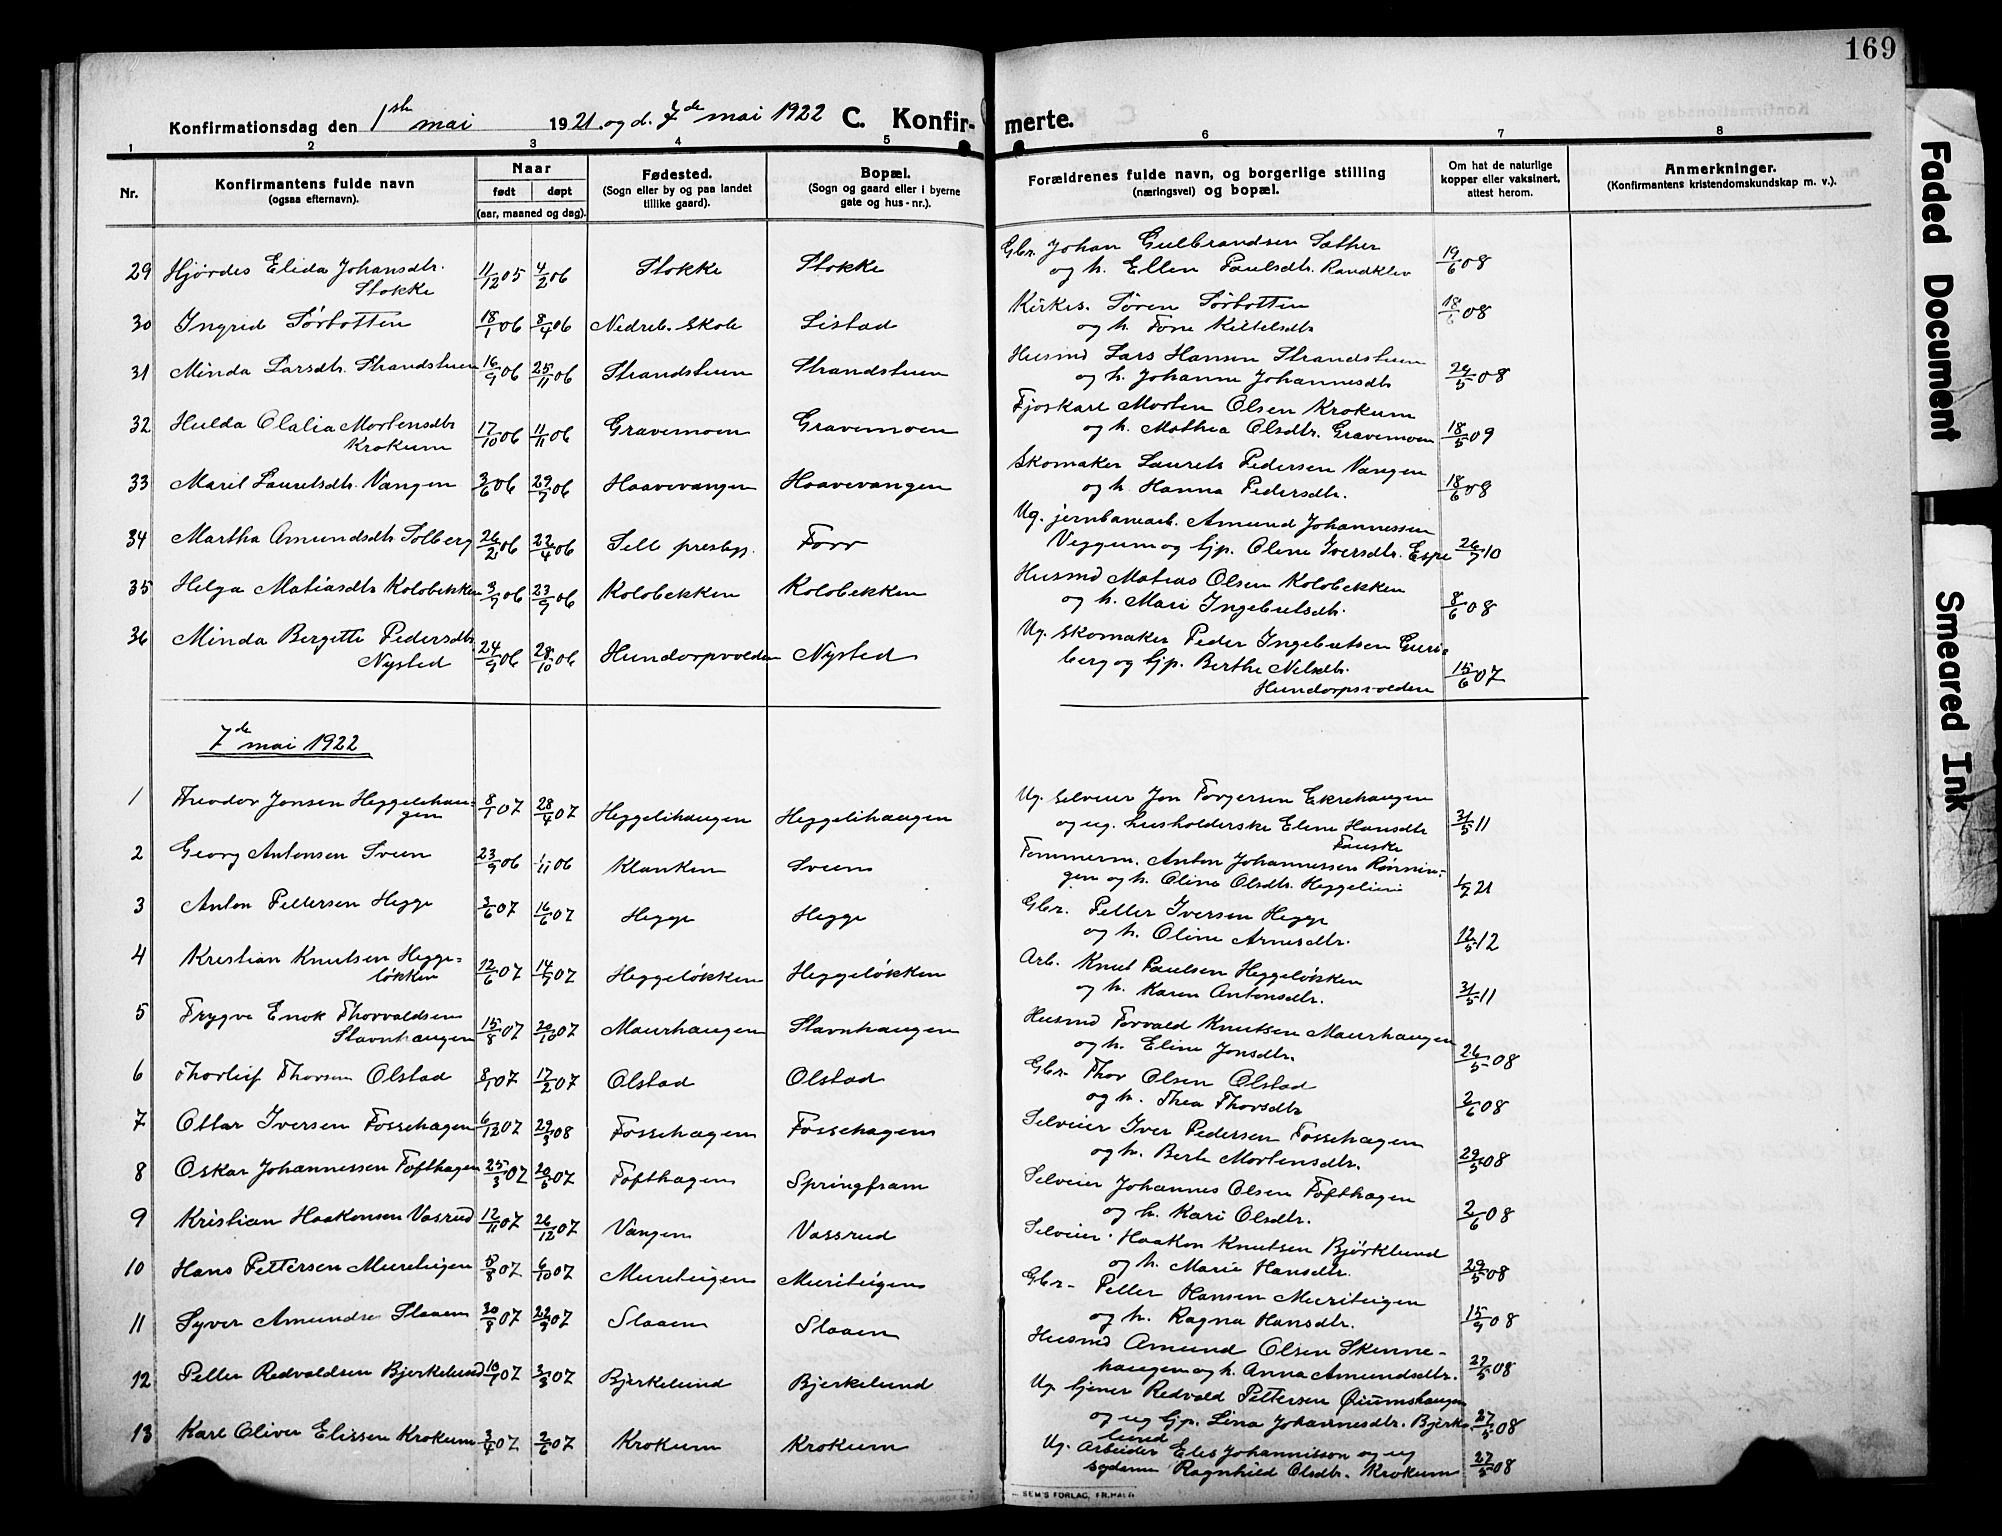 169
Konfirmationsdag den 1ste mai 1921 og d. 7de mai 1922 C. Konfir- merte.
1 2 3 4 5 6 7 8
Nr. Konfirmantens fulde navn Naar Fødested. Bopæl. Forældrenes fulde navn, og borgerlige stilling Om hat de naturlige Anmerkninger.
(ogsaa efternavn). født døpt (Sogn eller by og paa landet (Sogn og gaard eller i byerne (næringsvei) og bopæl. kopper eller vaksinert, (Konfirmantens kristendomskundskap m. v.).
(aar, maaned og dag). tillike gaard). gate og hus-nr.). attest herom.
29 Hjørdes Elida Johansdtr. 11/12 05 4/2 06 Stokke Stokke Gbr. Johan Gulbrandsen Sæther 19/6 08
Stokke og h. Ellen Paulsdtr. Randklev
30 Ingrid Sørbotten 18/1 06 8/4 06 Nedreb. Skole Listad Kirkes. Søren Sørbotten 18/6 08
og h. Tone Kittelsdtr
31 Minda Larsdtr. Strandstuen 16/9 06 25/11 06 Strandstuen Strandstuen Husmd Lars Hansen Strandstuen
og h. Johanne Johannesdtr 24/5 08
32 Hulda Olalia Mortensdtr 17/10 06 11/11 06 Gravemoen Gravemoen Fjøskarl Morten Olsen Krokum
Krokum og h. Mathea Olsdtr. Gravemoen 18/5 09
33 Marit Lauritsdtr. Vangen 3/6 06 29/7 06 Haavevangen Haavevangen Skomaker Laurits Pedersen Vangen
og h. Hanna Pedersdtr. 18/6 08
34 Martha Amundsdtr Solberg 26/2 06 22/4 06 Sell prestegj. Forr Ug. jernbanearb. Amund Johannessen
Veggum og Gjp. Oline Iversdtr. Espe 26/7 10
35 Helga Matiasdtr Kolobekken 3/9 06 23/9 06 Kolobekken Kolobekken Husmd Matias Olsen Kolobekken
og h. Mari Ingebretsdtr. 8/6 08
36 Minda Bergitte Pedersdtr 24/9 06 28/10 06 Hundorpvolden Nysted Ug. Skomaker Peder Ingebretsen Guri-
Nysted berg og Gjp. Berthe Nilsdtr. 15/6 07
Hundorpsvolden
7de mai 1922
1 Theodor Jonsen Heggelihau- 8/1 07 28/4 07 Heggelihaugen Heggelihaugen Ug. Selveier Jon Torgersen Ekrehaugen
gen og ug. husholderske Eline Hansdtr 31/5 11
Fauske
2 Georg Antonsen Sveen 23/9 06 1/11 06 Klanken Sveen Tømmerm. Anton Johannessen Rønnin-
gen og h. Oline Olsdtr. Heggelien 1/7 21
3 Anton Pettersen Hegge 3/6 07 16/6 07 Hegge Hegge Gbr. Petter Iversen Hegge
og h. Oline Arnesdtr. 12/5 12
4 Kristian Knutsen Hegge- 12/6 07 14/7 07 Heggeløkken Heggeløkken Arb. Knut Paulsen Heggeløkken
løkken og h. Karen Antonsdtr. 31/5 11
5 Trygve Enok Thorvaldsen 15/8 07 20/10 07 Maurhaugen Stavnhaugen Husmd Torvald Knutsen Maurhaugen
Stavnhaugen og h. Eline Jonsdtr. 26/5 08
6 Thorleif Thorsen Olstad 8/1 07 17/2 07 Olstad Olstad Gbr. Thor Olsen Olstad
og h. Thea Thorsdtr 2/6 08
7 Ottar Iversen Fossehagen 6/12 07 29/3 08 Fossehagen Fossehagen Selveier Iver Pedersen Fossehagen
og h. Berte Mortensdtr. 29/5 08
8 Oskar Johannessen Tofthagen 25/3 07 20/5 07 Tofthagen Springfram Selveier Johannes Olsen Tofthagen
og h. Kari Olsdtr. 2/6 08
9 Kristian Haakonsen Vasrud 12/11 07 26/12 07 Vangen Vassrud Selveier Haakon Knutsen Bjørklund
og h. Marie Hansdtr. 29/5 08
10 Hans Pettersen Muriteigen 8/8 07 6/10 07 Muriteigen Muriteigen Gbr. Petter Hansen Muriteigen
og h. Ragna Hansdtr. 15/9 08
11 Syver Amundse Slaaen 20/8 07 22/9 07 Slaaen Slaaen Husmd Amund Olsen Skinne-
haugen og h. Anna Amundsdtr. 27/5 08
12 Petter Redvaldsen Bjerkelund 10/1 07 3/3 07 Bjerkelund Bjerkelund Ug. tjener Redvald Pettersen Øiumshaugen
og ug Gjp. Lina Johannesdtr. Bjerke- 27/5 08
lund
13 Karl Oliver Elissen Krokum 3/4 07 2/6 07 Krokum Krokum Ug. Arbeider Elis Johannisson og ug
syderne Ragnhild Olsdtr. Krokum 27/5 08
SEM'S FORLAG, FR.HALD
Faded Document
Smeared Ink